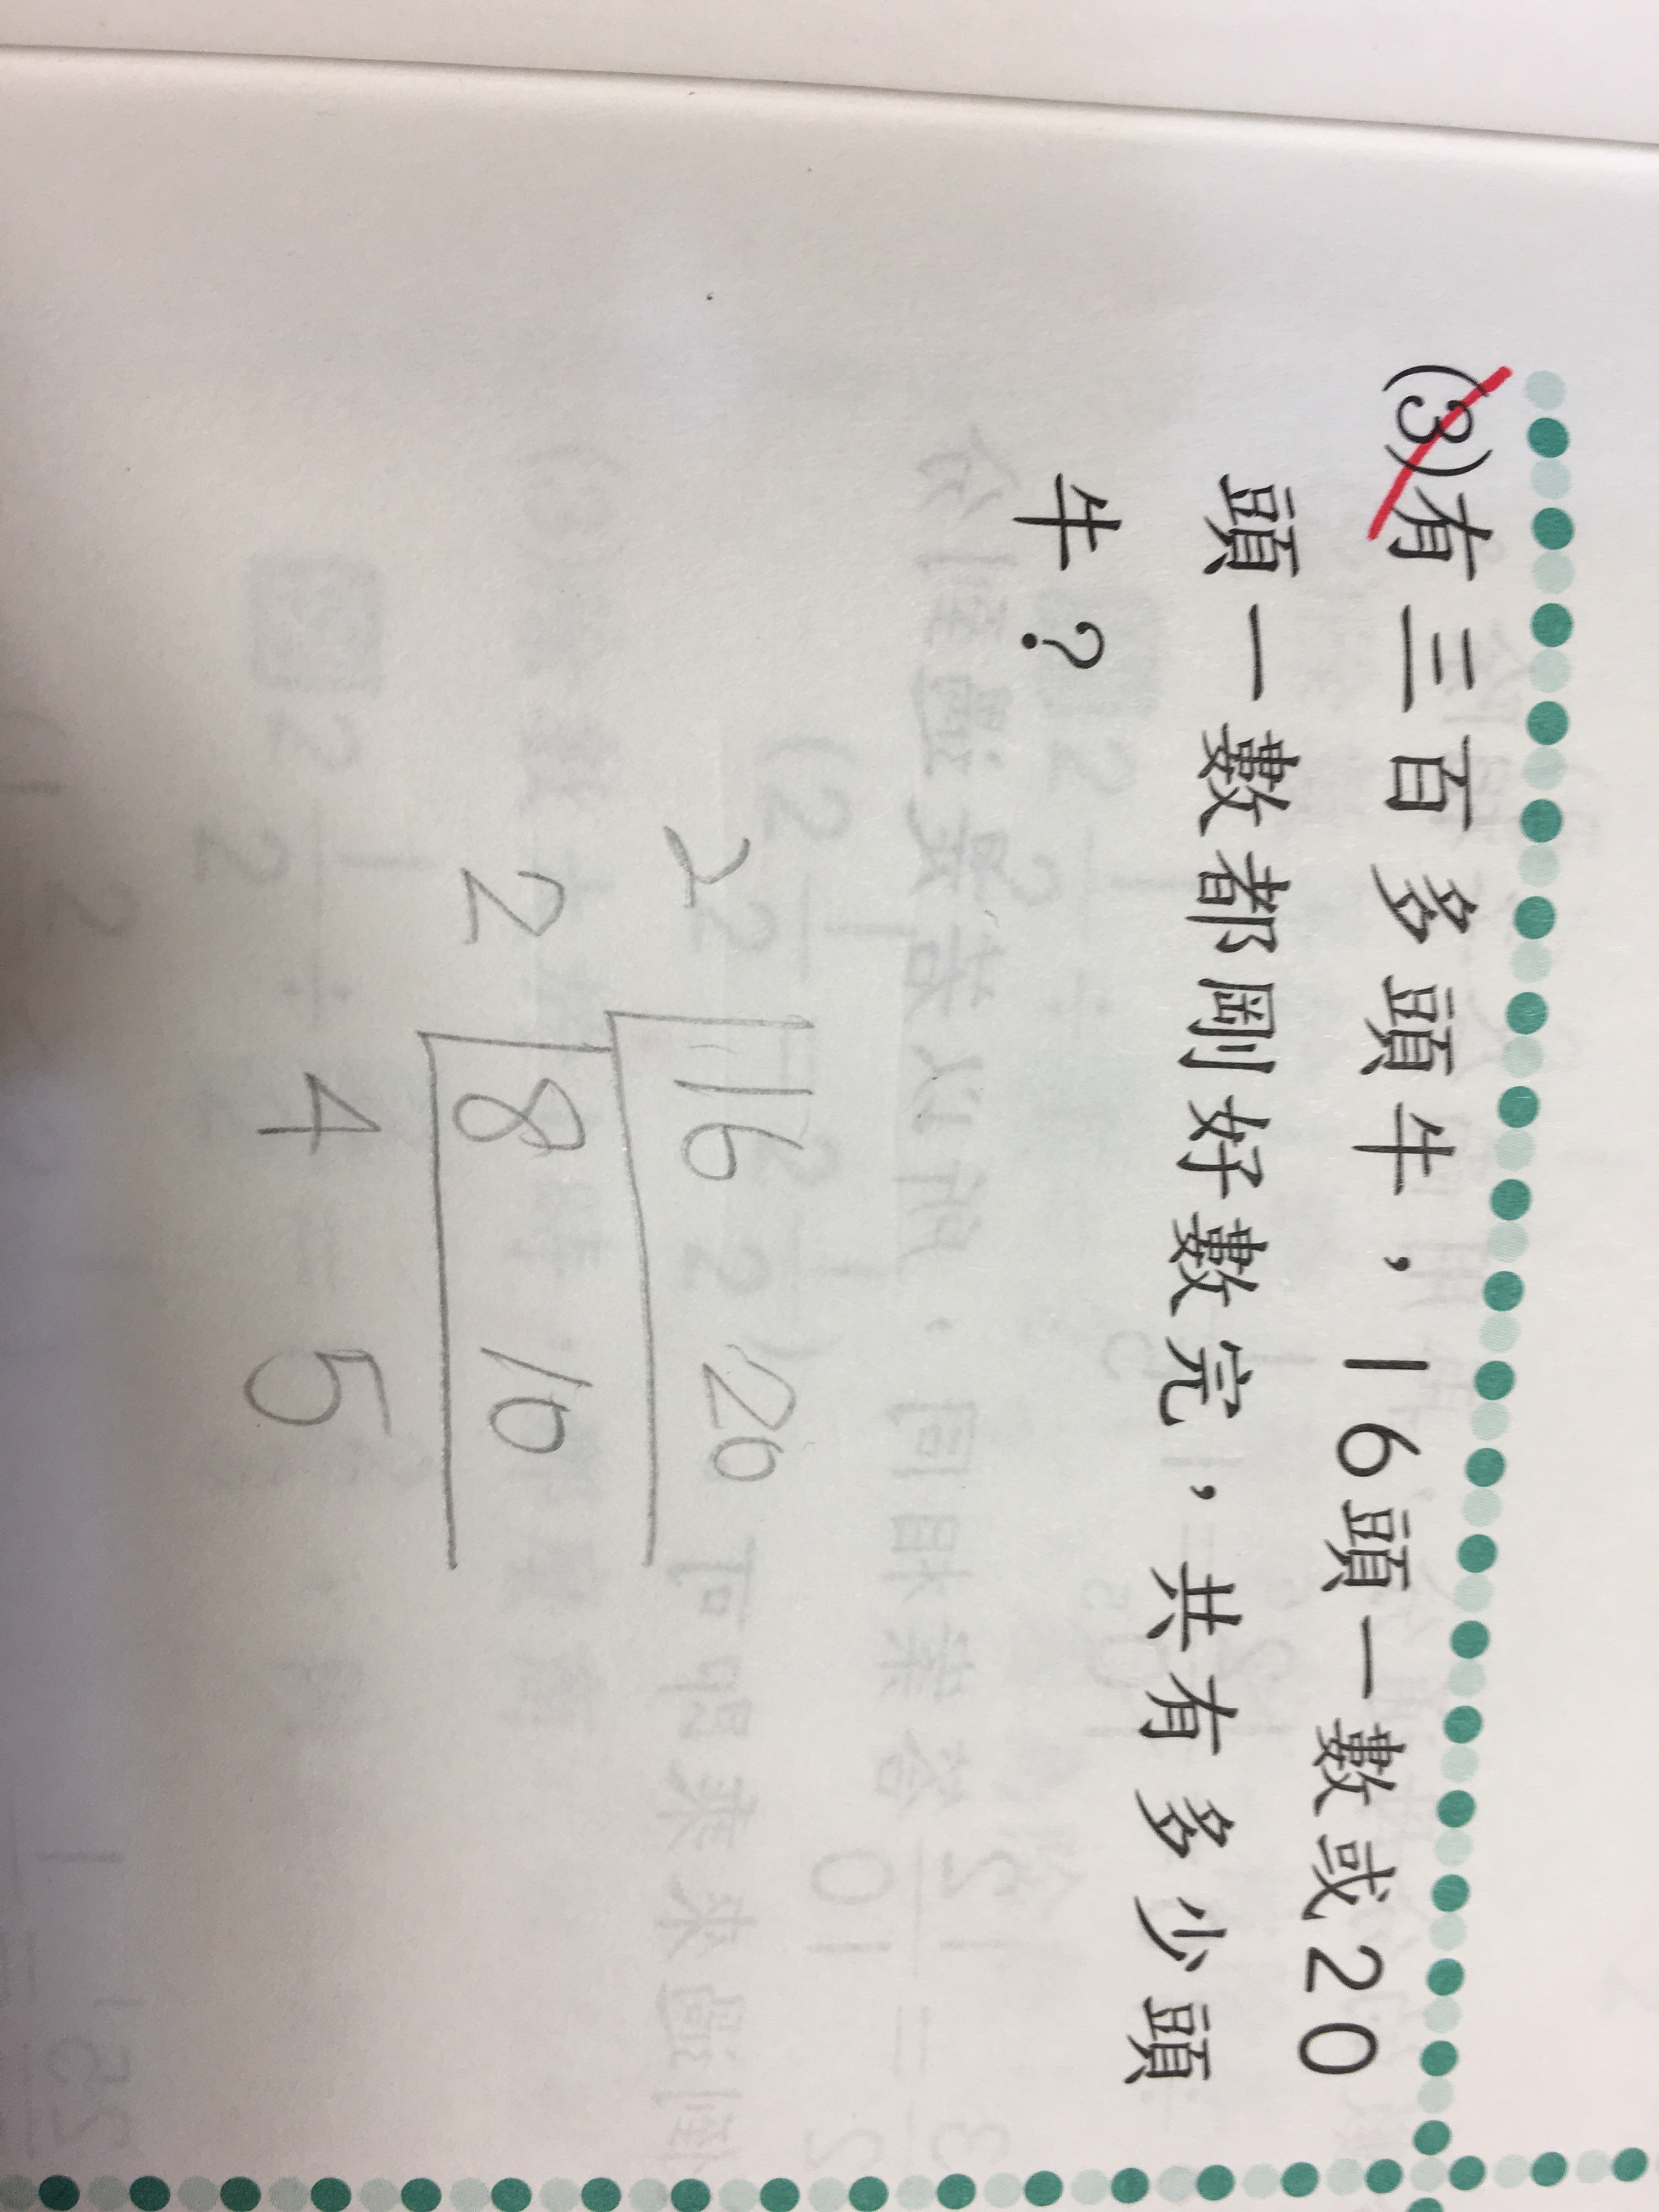 (3)有三百多頭牛，16頭一數或20
頭一數都剛好數完，共有多少頭
牛？
2 16 20
2 8 10
4 5